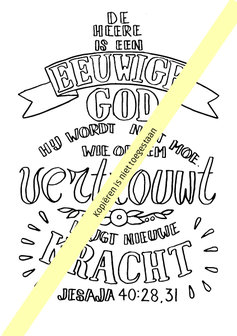 DE
HEERE
IS EEN
EEUWIGE
GOD
HIJ WORDT NIET MOE
WIE OP HEM
vertrouwt
KRIJGT NIEUWE
KRACHT
JESAJA 40:28,31
Kopiëren is niet toegestaan